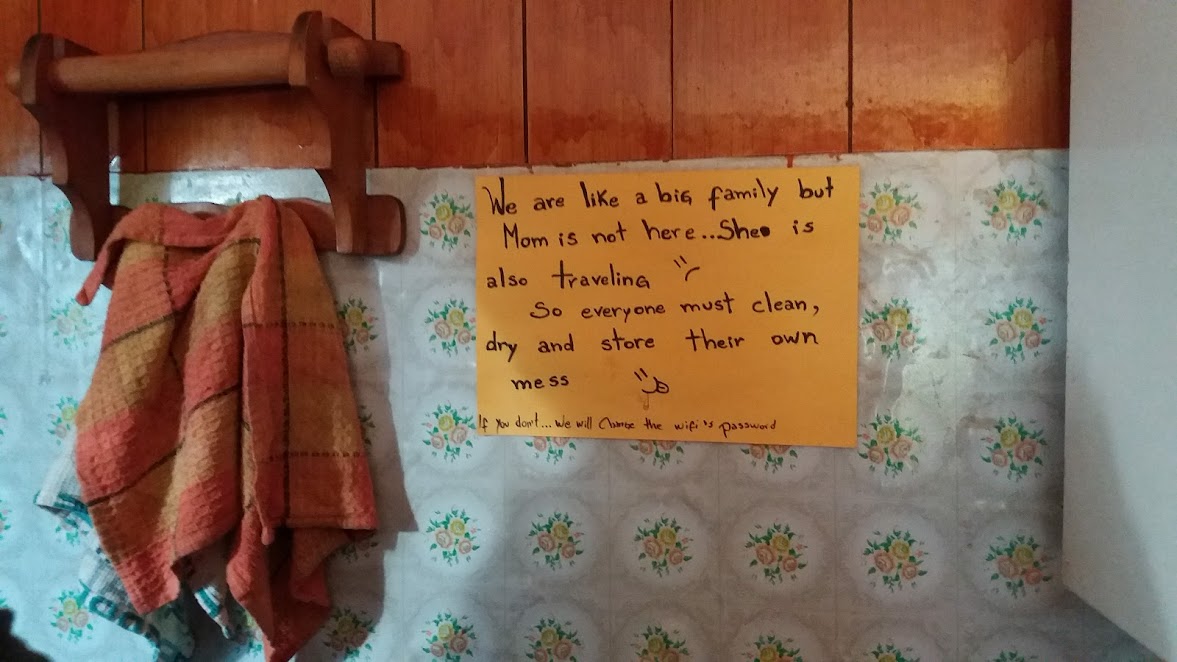 We are like a big family but
Mom is not here..She is
also traveling
So everyone must clean,
dry and store their own
mess
If you don't... We will Change the wifi's password